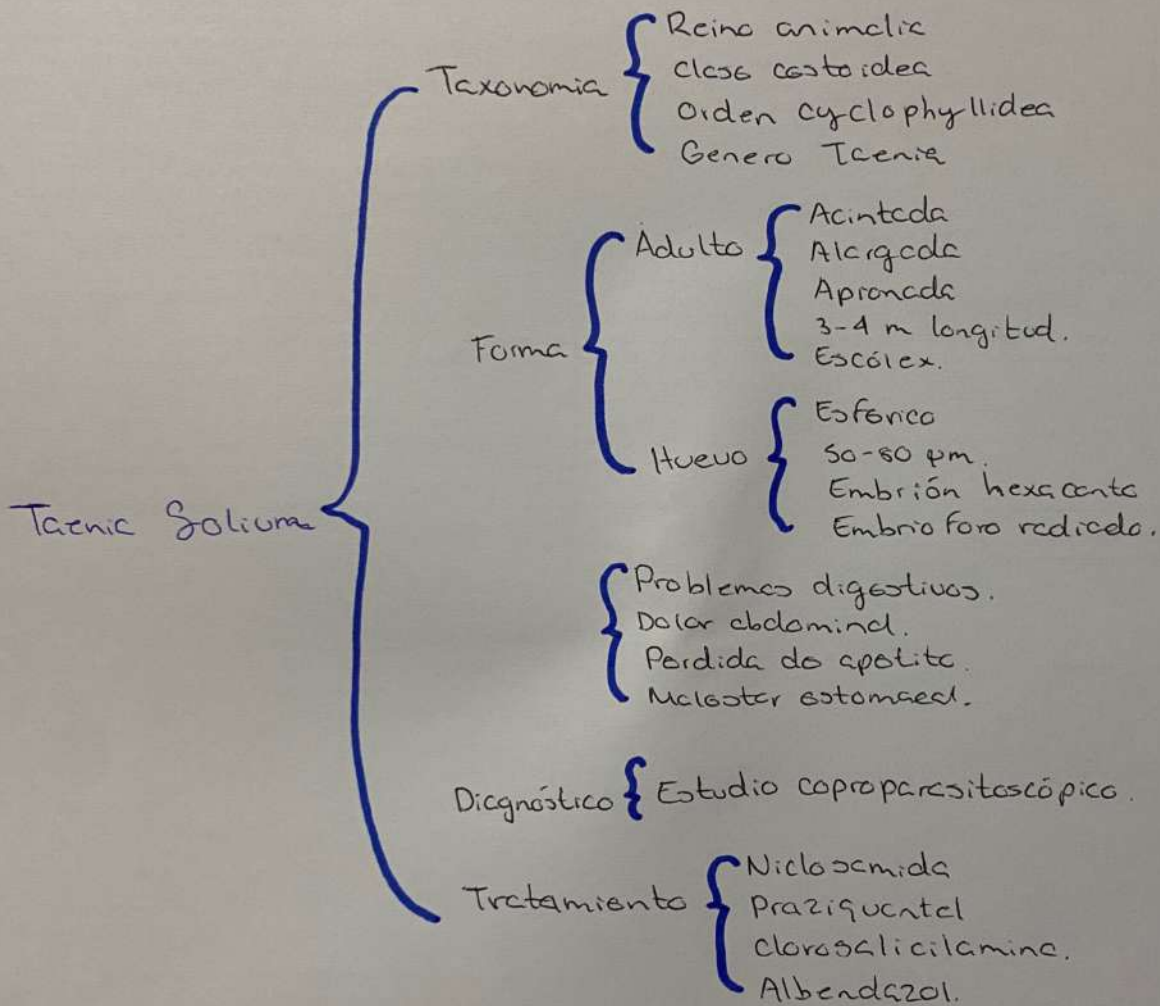 Taxonomia
Reino animalia
clase cestoidea
Orden cyclophyllidea
Genero Taenia
Forma
Adulto
Acintada
Alargada
Apronada
3-4 m longitud.
Escólex.
Huevo
Esferico
50-80 µm.
Embrión hexacanto
Embrio foro radiado.
Taenia Solium
Problemas digestivos.
Dolor abdominal.
Perdida de apetito.
Malestar estomacal.
Diagnóstico
Estudio coproparasitoscópico.
Tratamiento
Niclosamida
Praziquantel
clorosalicilamina.
Albendazol.